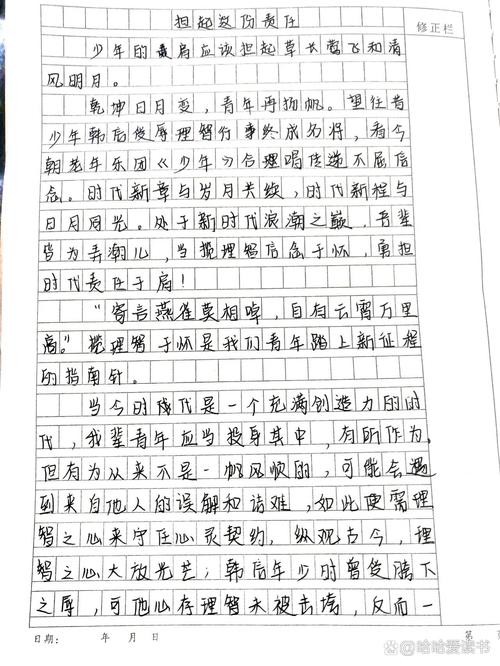 担起这份责任
修正栏
少年的肩肩应该担起草长莺飞和清
风明月。
乾坤日月变，青年再扬帆。望往昔
少年韩信受辱理智行事终成名将，看今
朝老年乐团《少年》合理唱传递不屈信
念。时代新章与岁月共续，时代新程与
日月同光。处于新时代浪潮之巅，吾辈
皆为弄潮儿，当揽理智信念于怀，勇担
时代责任于肩！
“寄言燕雀莫相啅，自有云霄万里
高。”揽理智于怀是我们青年踏上新征程
的指南针。
当今时代是一个充满创造力的时
代，我辈青年应当投身其中，有所作为。
但有为从来不是一帆风顺的，可能会遇
到来自他人的误解和诘难，如此便需理
智之心来守住心灵契约，纵观古今，理
智之心大放光芒；韩信年少时曾受胯下
之辱，可他心存理智未被击垮，反而一
日期： 年 月 日 第
@哈哈爱读书